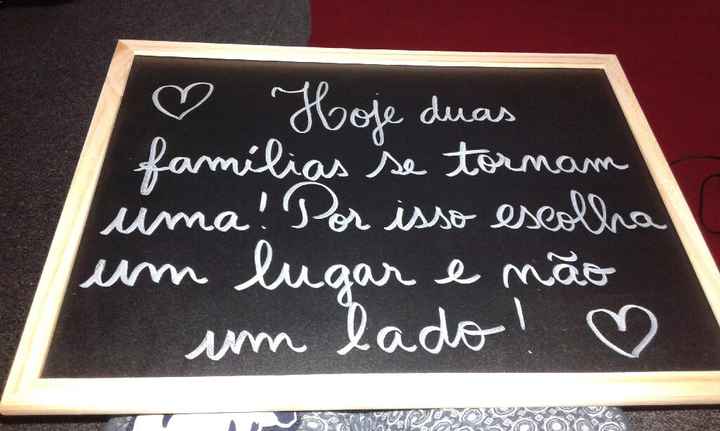 Hoje duas
famílias se tornam
uma! Por isso escolha
um lugar e não
um lado!